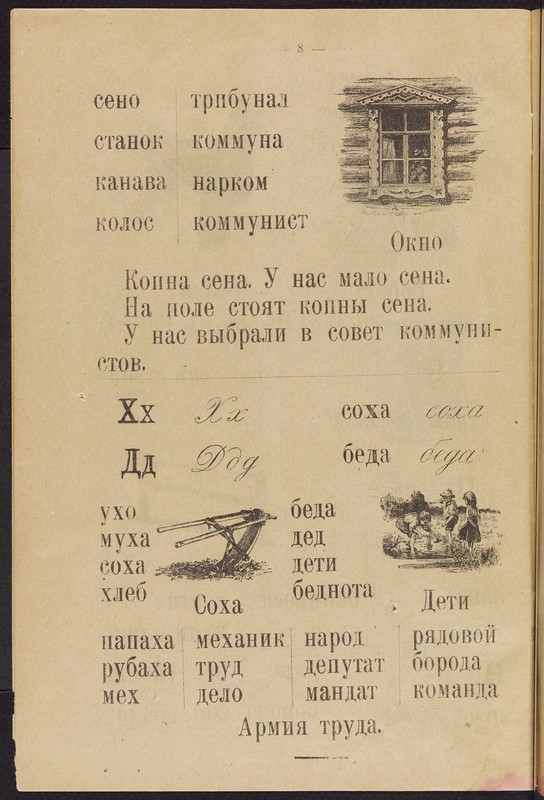 — 8 —
сено трибунал
станок коммуна
канава нарком
колос коммунист
Окно
Копна сена. У нас мало сена.
На поле стоят копны сена.
У нас выбрали в совет коммуни-
стов.
Хх Хх соха соха
Дд Ддд беда беда
ухо беда
муха дед
соха дети
хлеб беднота
Соха Дети
папаха механик народ рядовой
рубаха труд депутат борода
мех дело мандат команда
Армия труда.